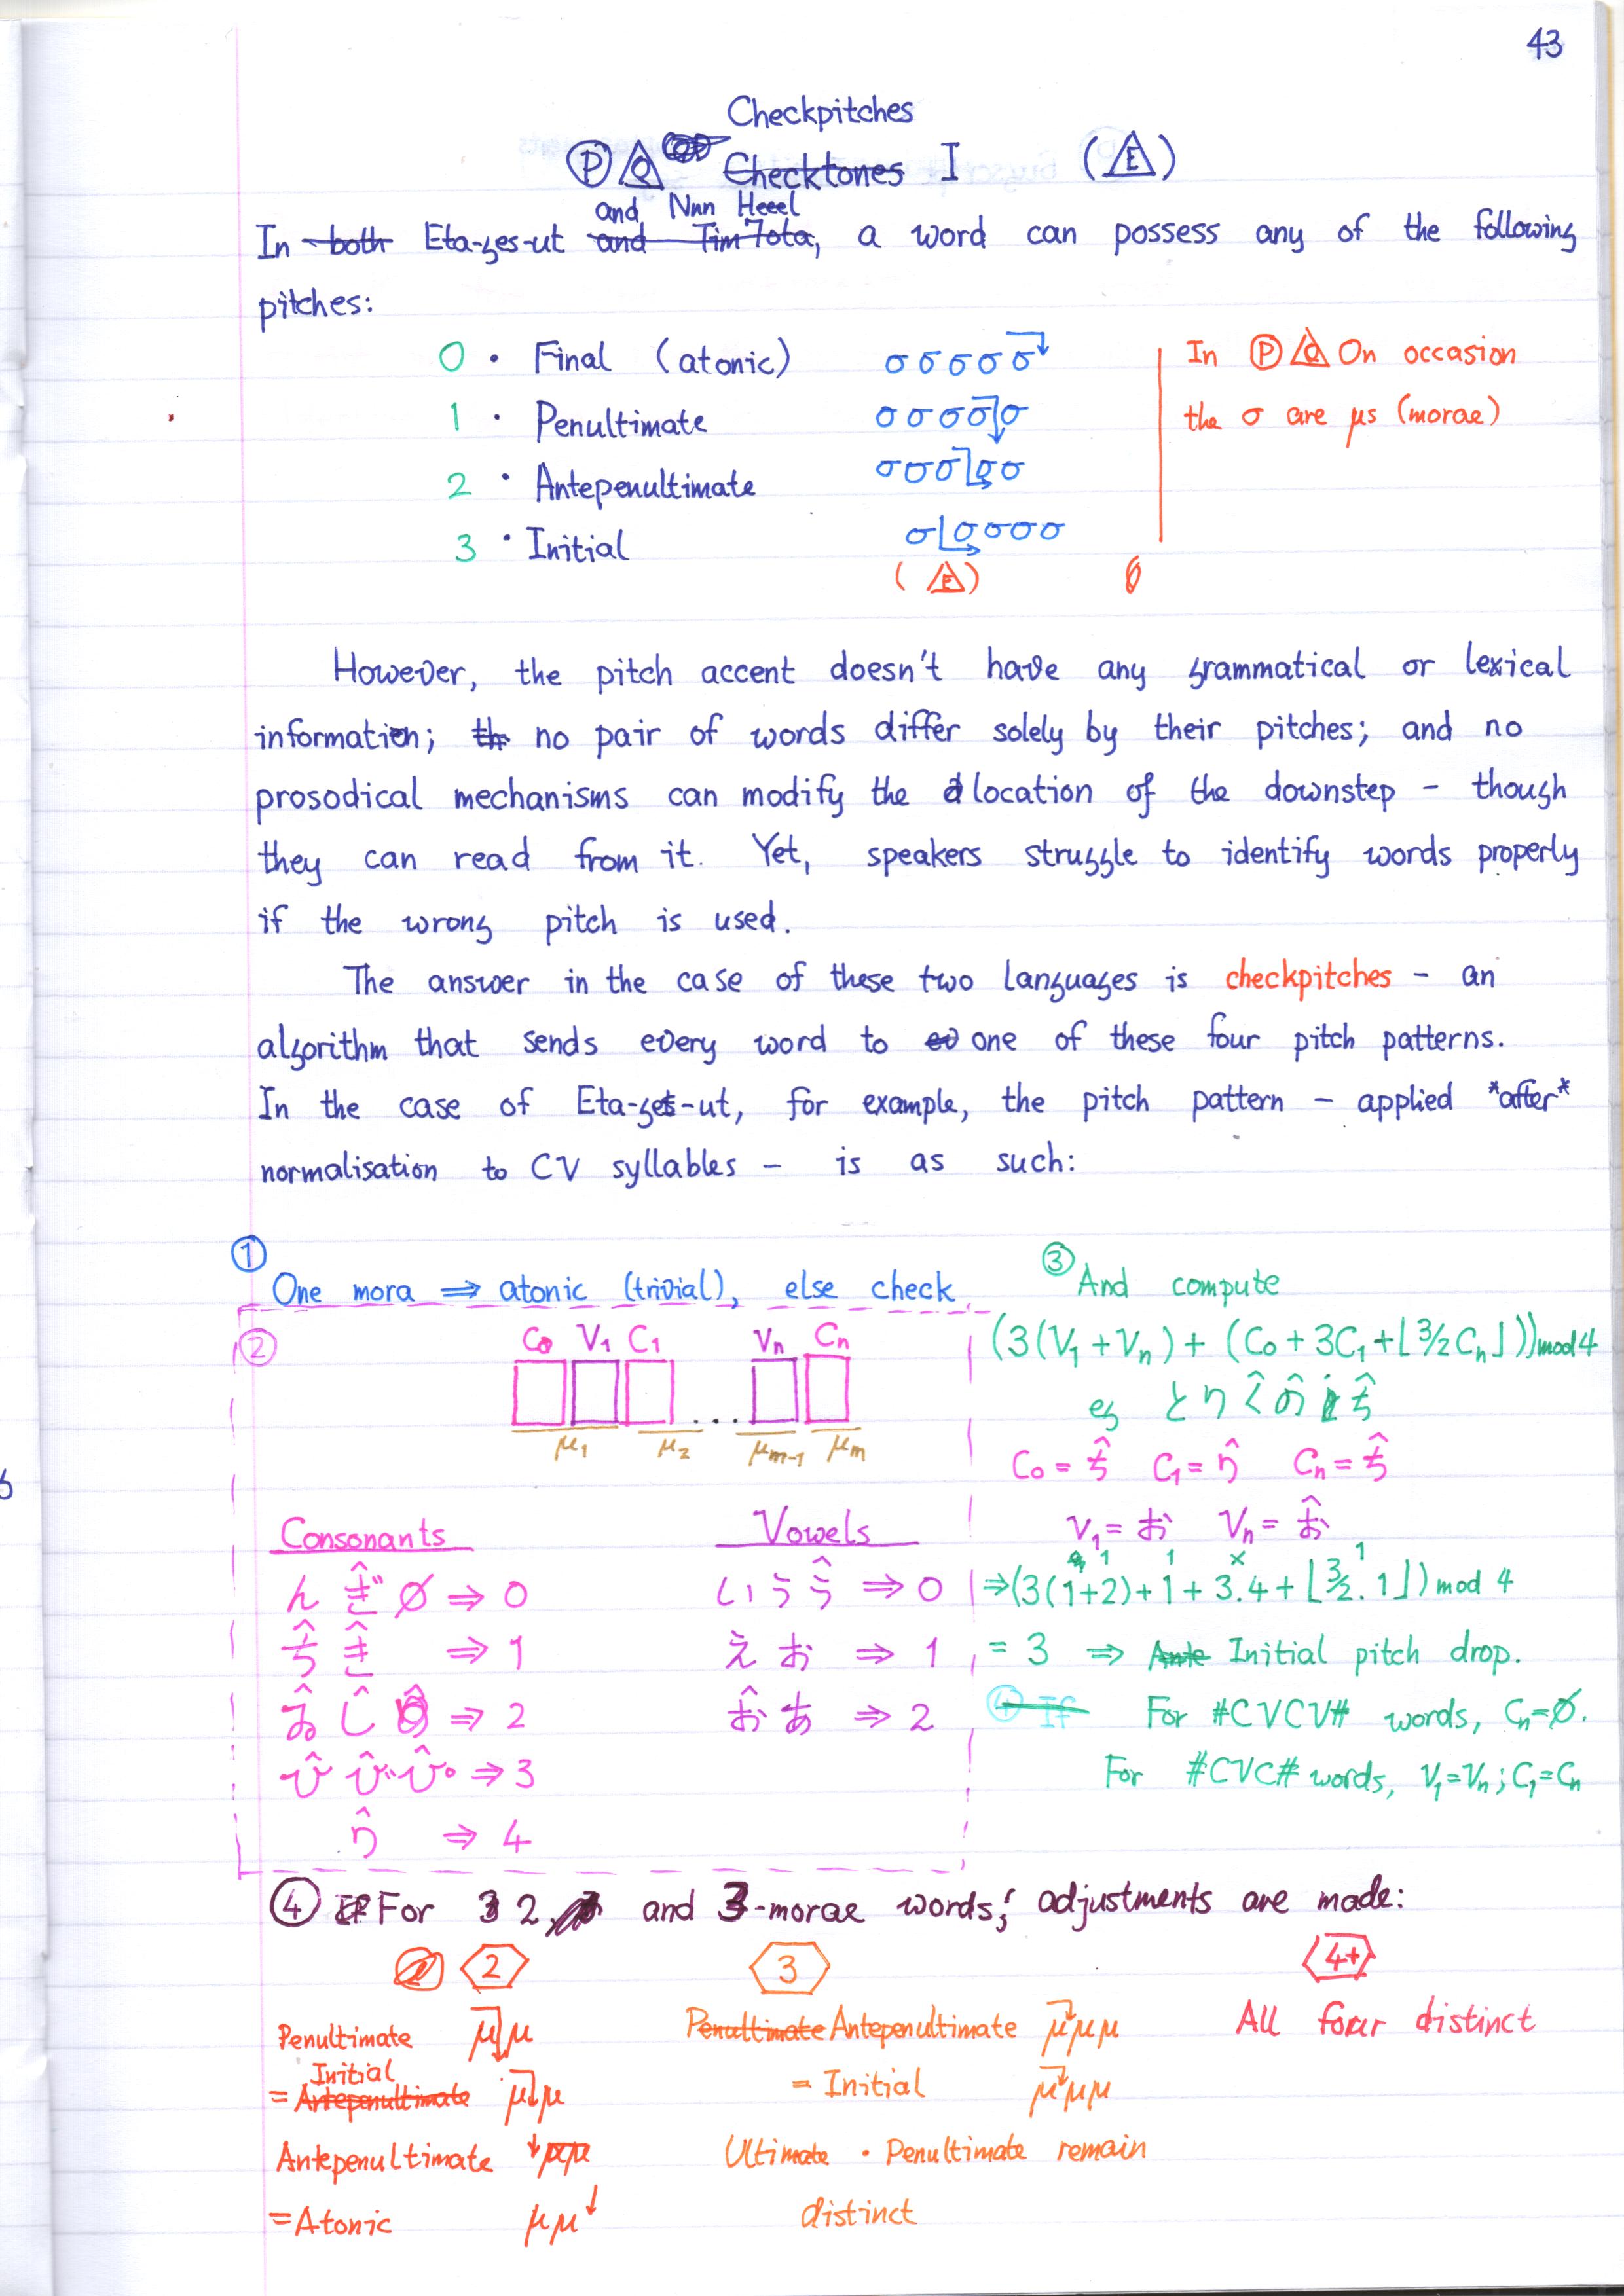 43
Checkpitches
P Q Checktones I (E)
and Nnn Heeel
In both Eta-ges-ut and Tim7ota, a word can possess any of the following
pitches:
0 · Final (atonic) σσσσσ
1 · Penultimate σσσσσ
2 · Antepenultimate σσσσσ
3 · Initial σσσσσ
(E)
In P Q On occasion
the σ are μs (morae)
However, the pitch accent doesn't have any grammatical or lexical
information; th no pair of words differ solely by their pitches; and no
prosodical mechanisms can modify the d location of the downstep – though
they can read from it. Yet, speakers struggle to identify words properly
if the wrong pitch is used.
The answer in the case of these two languages is checkpitches – an
algorithm that sends every word to one of these four pitch patterns.
In the case of Eta-ges-ut, for example, the pitch pattern – applied *after*
normalisation to CV syllables – is as such:
①
One mora ⇒ atonic (trivial), else check
②
C0 V1 C1 Vn Cn
...
μ1 μ2 μm-1 μm
Consonants
ん ぎ̂ ∅ ⇒ 0
ち̂ き̂ ⇒ 1
る̂ し̂ ⇒ 2
ひ̂ び̂ ぴ̂ ⇒ 3
り̂ ⇒ 4
Vowels
い う う̂ ⇒ 0
え お ⇒ 1
お̂ あ ⇒ 2
③ And compute
(3(V1 + Vn) + (C0 + 3C1 + ⌊3/2 Cn⌋)) mod 4
eg と り く̂ お̂ ち̂
C0 = ち̂ C1 = り̂ Cn = ち̂
V1 = お Vn = お̂
1 1 x 1
⇒ (3(1+2) + 1 + 3.4 + ⌊3/2 . 1⌋) mod 4
= 3 ⇒ Ante Initial pitch drop.
④ If For #CVCV# words, Cn=∅.
For #CVC# words, V1=Vn; C1=Cn
④ If For 3 2, and 3-morae words; adjustments are made:
2
Penultimate μμ
Initial
= Antepenultimate μμ
Antepenultimate ↓μμ
= Atonic μμ↓
3
Penultimate Antepenultimate μμμ
= Initial μμμ
Ultimate · Penultimate remain
distinct
4+
All four distinct